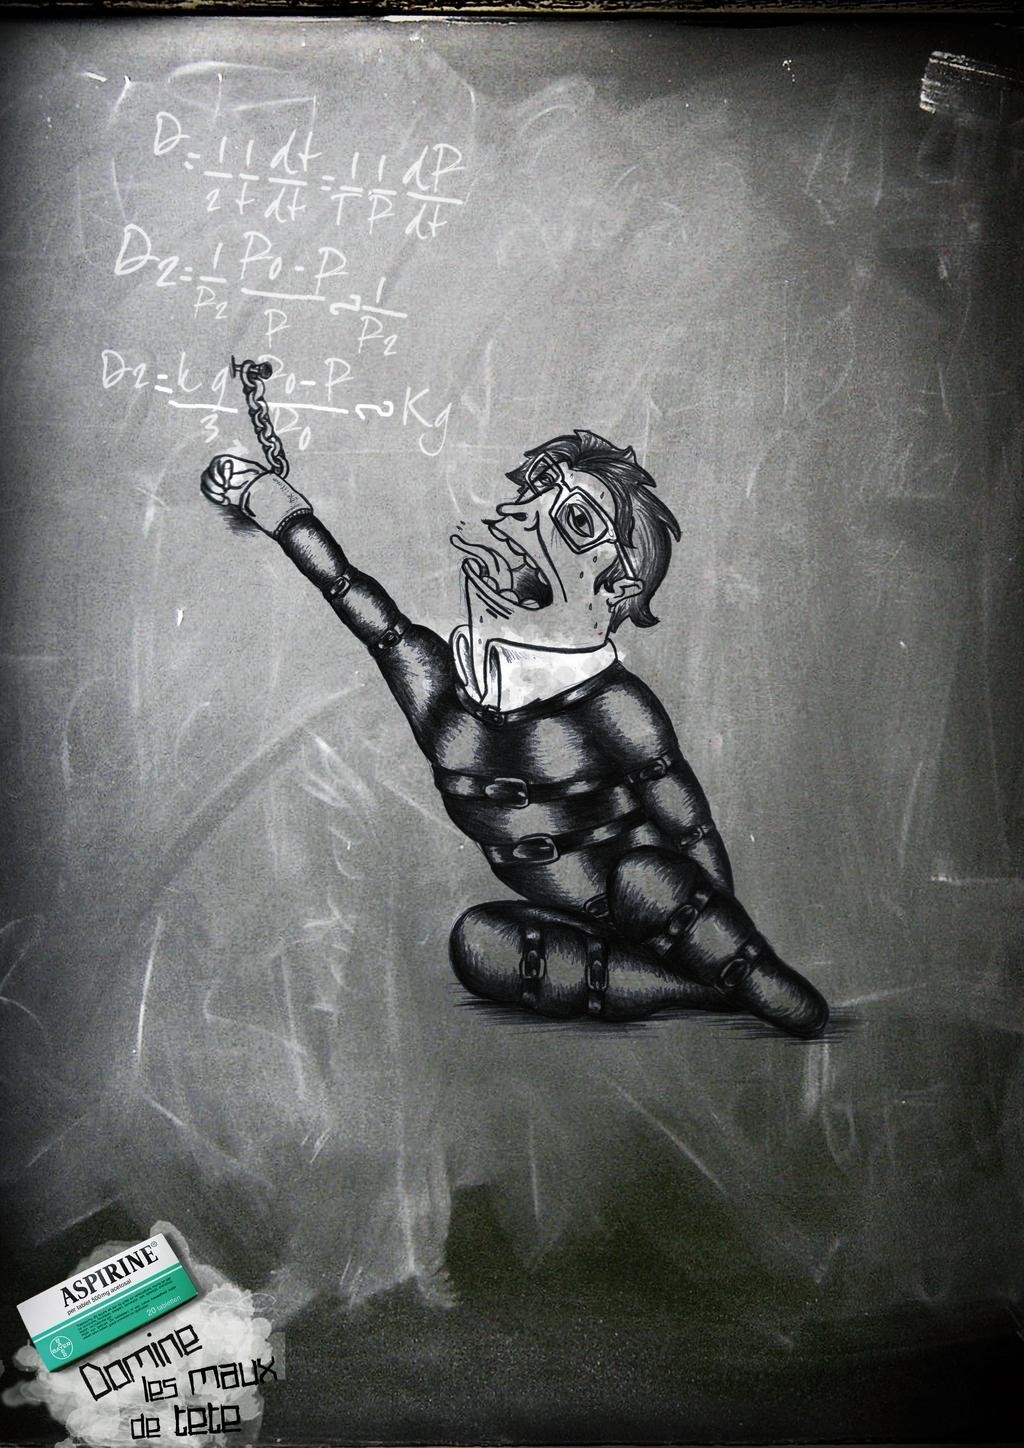 D = 1/2 1/t dt/dt = 1/T 1/P dP/dt
D2 = 1/P2 P0 - P/P ~ 1/P2
D2 = k g/3 P0 - P/P0 ~ Kg
ASPIRINE®
per tablet 500mg acetosal
20 tabletten
BAYER
Domine
les maux
de tete